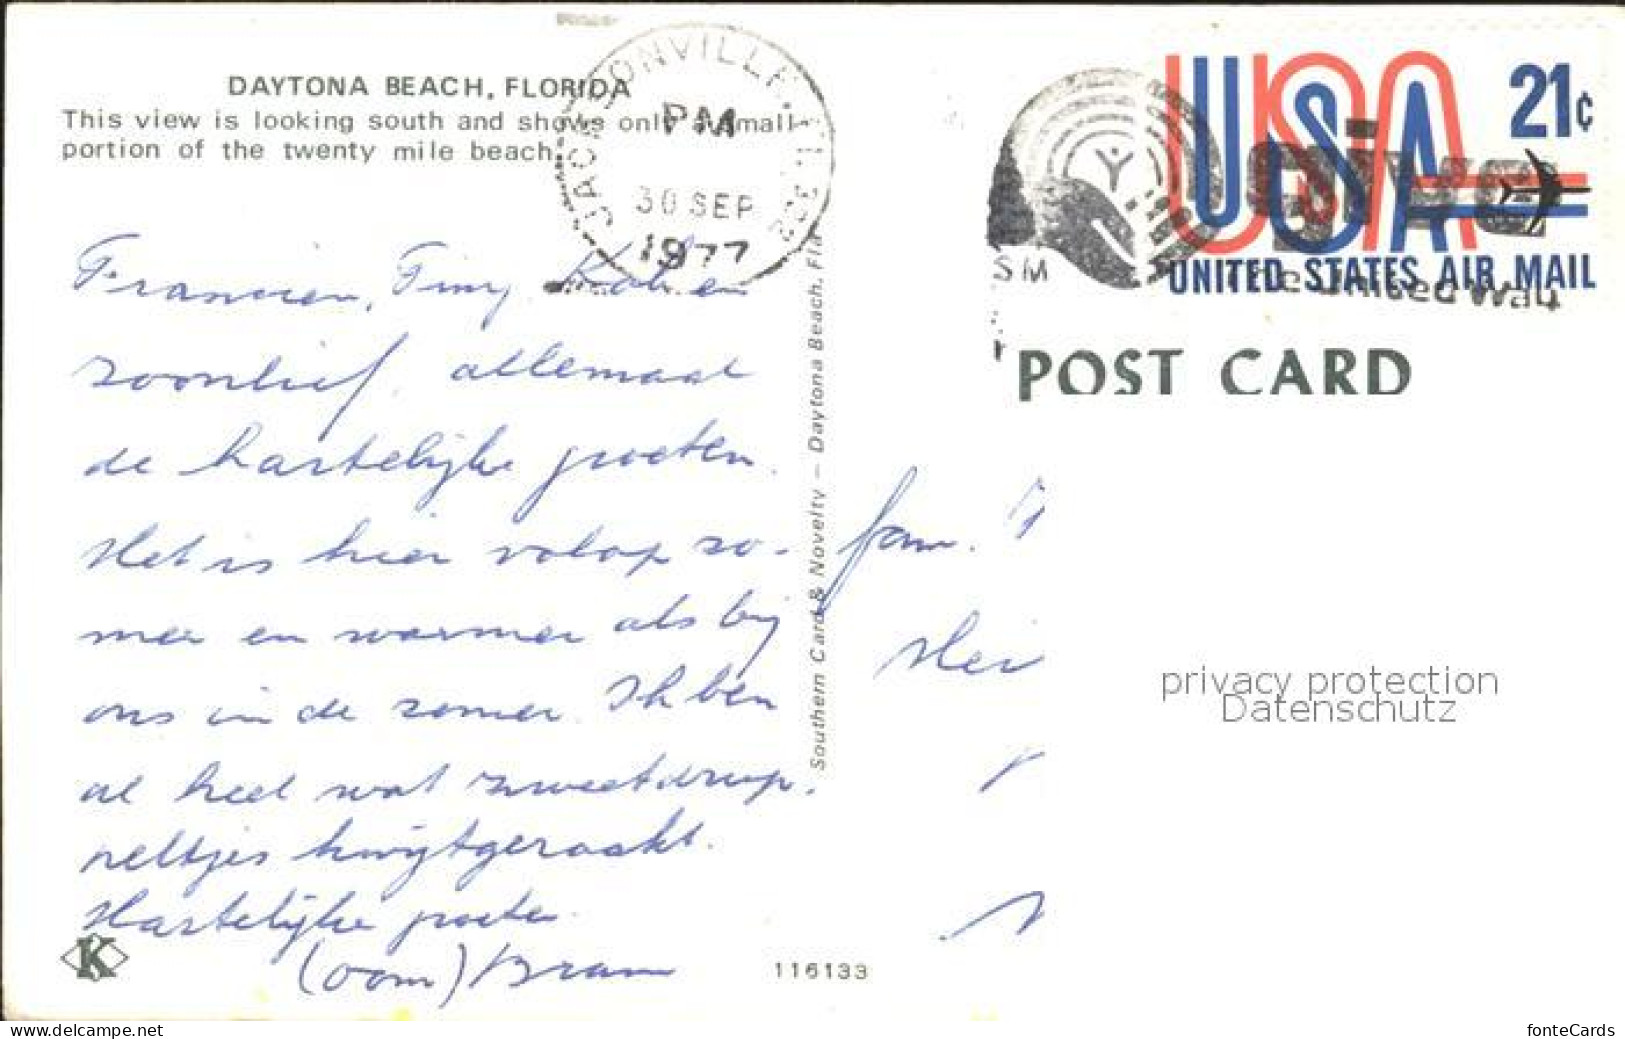 DAYTONA BEACH, FLORIDA
This view is looking south and shows only a small
portion of the twenty mile beach.
JACKSONVILLE, FL 322
PM
30 SEP
1977
USA 21c
UNITED STATES AIR MAIL
Give
The United Way
POST CARD
Francien, Tiny, Rob en
zoonlief, allemaal
de hartelijke groeten.
Het is hier volop zo-
mer en warmer als bij
ons in de zomer. Ik ben
al heel wat zweetdrup-
peltjes kwijtgeraakt.
Hartelijke groeten
(oom) Bram
Southern Card & Novelty — Daytona Beach, Fla
fam.
privacy protection
Datenschutz
K
116133
www.delcampe.net
fonteCards